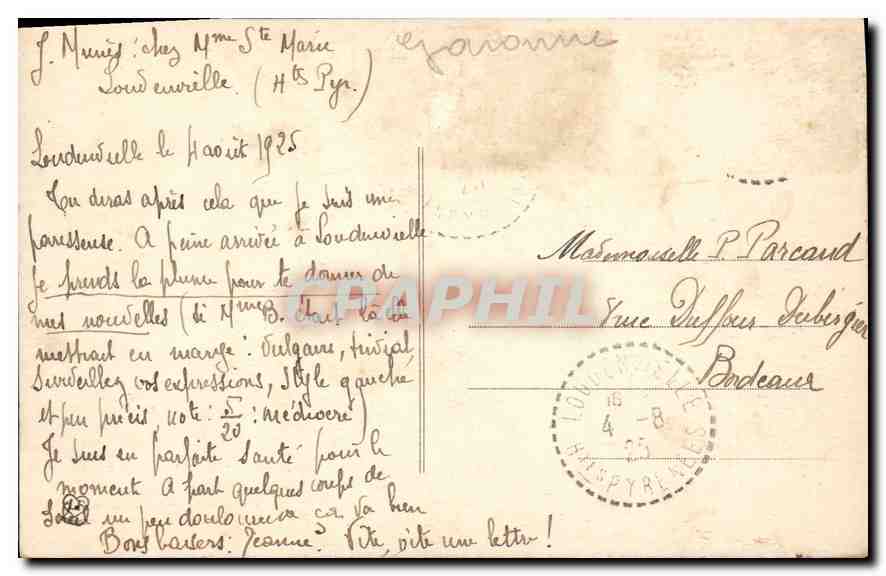 J. Muniès : chez Mme Ste Marie
Loudenvielle. (Htes Pyr.)
Garonne
Loudenvielle le 4 août 1925
Tu diras après cela que je suis une
paresseuse. A peine arrivée à Loudenvielle
je prends la plume pour te donner de
mes nouvelles (si Mme B. était là elle
mettrait en marge : Vulgaire, trivial,
Surveillez vos expressions, Style gauche
et peu précis, note : 5/20 : médiocre)
Je suis en parfaite santé pour le
moment. A part quelques coups de
Soleil un peu douloureux ça va bien
Bons baisers : Jeanne. Vite, vite une lettre !
Mademoiselle P. Parcaud
rue Duffour Dubergier
Bordeaux
LOUDENVIELLE
16
4 -8
25
HTES PYRENEES
CPAPHIL